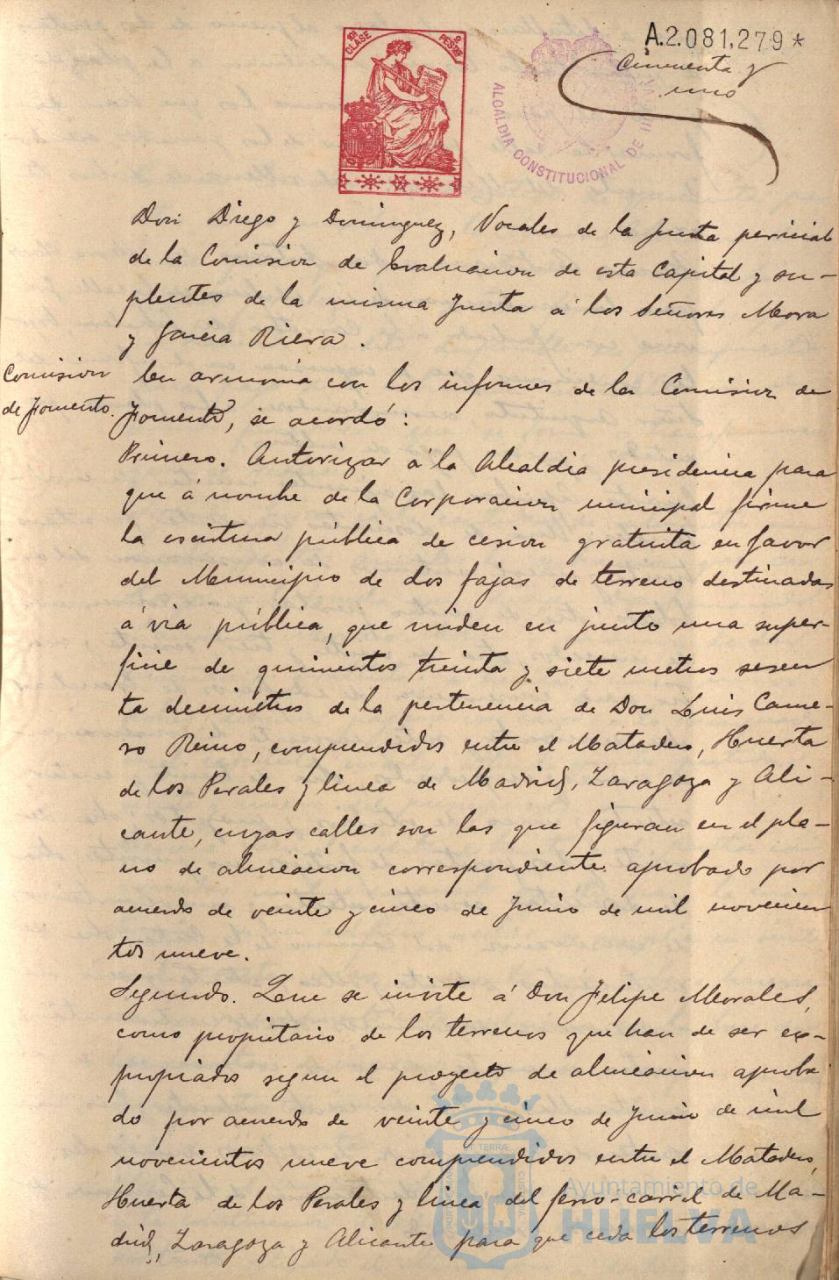 10ª CLASE
2 PESETAS
ALCALDIA CONSTITUCIONAL DE HUELVA
A.2.081,279*
Cincuenta y
uno
Don Diego y Dominguez, Vocales de la Junta pericial
de la Comision de Evaluacion de esta Capital y su-
plentes de la misma Junta á los Señores Mora
y Garcia Riera.
Comision
de Fomento.
En armonia con los informes de la Comision de
Fomento, se acordó:
Primero. Autorizar á la Alcaldia presidencia para
que á nombre de la Corporacion municipal firme
la escritura pública de cesion gratuita en favor
del Municipio de dos fajas de terreno destinadas
á via pública, que miden en junto una super-
ficie de quinientos treinta y siete metros sesen
ta decimetros de la pertenencia de Don Luis Came-
ro Reino, comprendidos entre el Matadero, Huerta
de los Perales y linea de Madrid, Zaragoza y Ali-
cante, cuyas calles son las que figuran en el pla-
no de alineacion correspondiente aprobado por
acuerdo de veinte y cinco de Junio de mil novecien
tos nueve.
Segundo. Que se invite á Don Felipe Morales,
como propietario de los terrenos que han de ser ex-
propiados segun el proyecto de alineacion aproba
do por acuerdo de veinte y cinco de Junio de mil
novecientos nueve comprendidos entre el Matadero,
Huerta de los Perales y linea del ferro-carril de Ma-
drid, Zaragoza y Alicante para que ceda los terrenos
Ayuntamiento de
HUELVA